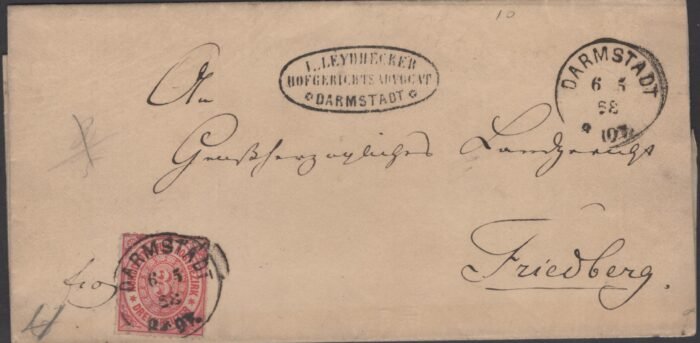 10
L. LEYDHECKER
HOFGERICHTSADVOCAT
DARMSTADT
DARMSTADT
6 5
68
An
Großherzogliches Landgericht
Friedberg.
fro
DARMSTADT
6 5
68
3